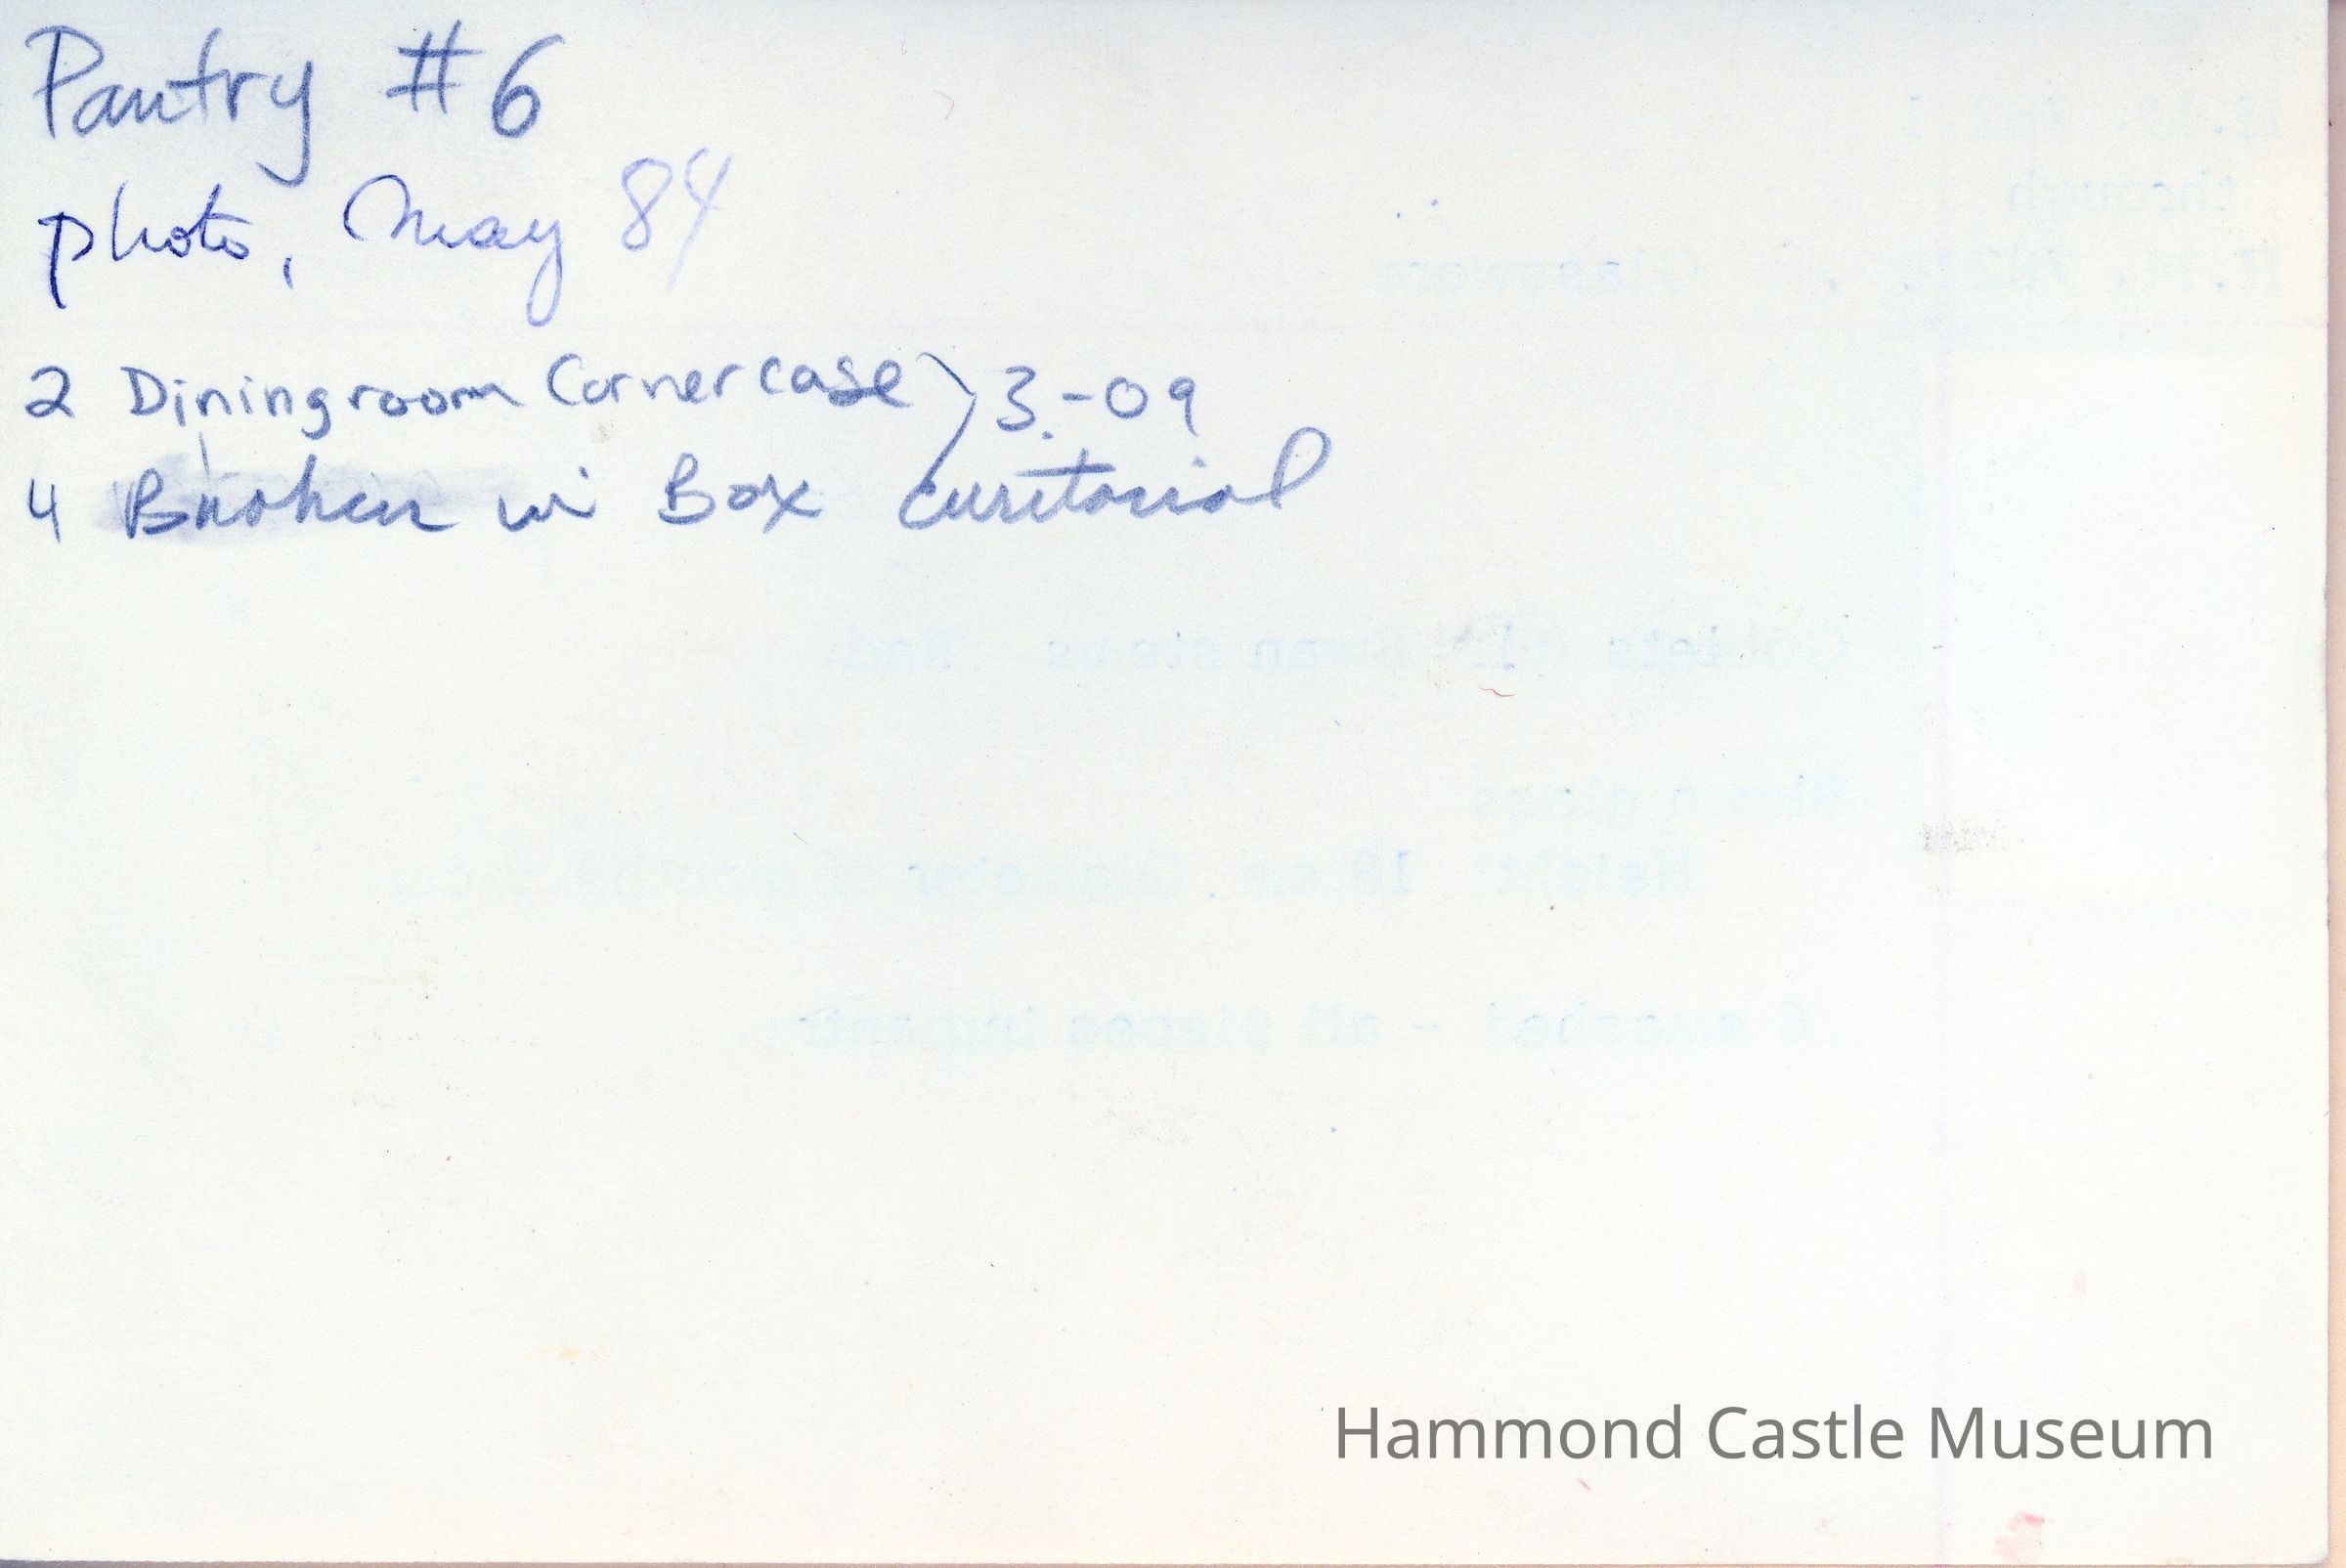 Pantry #6
photo, May 84
2 Diningroom Cornercase ) 3-09
4 Broken in Box curitorial
Hammond Castle Museum